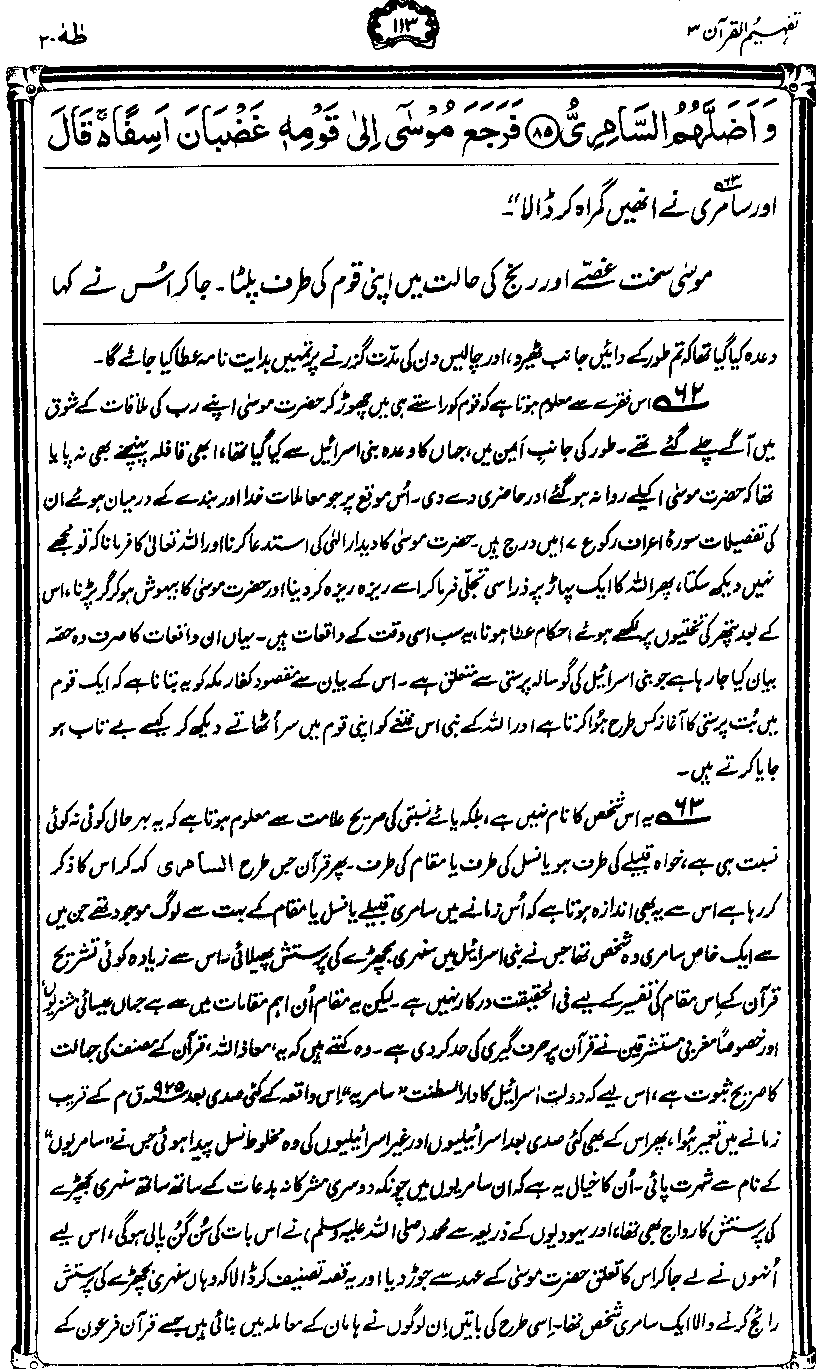 تفہیم القرآن ۳
۱۱۳
طٰہٰ ۲۰
وَاَضَلَّهُمُ السَّامِرِيُّ ﴿۸۵﴾ فَرَجَعَ مُوْسٰٓى اِلٰى قَوْمِهٖ غَضْبَانَ اَسِفًا ۚ قَالَ
اور سامری۶۳ نے انھیں گمراہ کر ڈالا“۔
موسٰی سخت غصّے اور رنج کی حالت میں اپنی قوم کی طرف پلٹا۔ جا کر اُس نے کہا
وعدہ کیا گیا تھا کہ تم طور کے دائیں جانب ٹھیرو، اور چالیس دن کی مدّت گزرنے پر تمہیں ہدایت نامہ عطا کیا جائے گا۔
۶۲ اس فقرے سے معلوم ہوتا ہے کہ قوم کو راستے ہی میں چھوڑ کر حضرت موسٰی اپنے رب کی ملاقات کے شوق
میں آگے چلے گئے تھے۔ طور کی جانبِ اَیمن میں، جہاں کا وعدہ بنی اسرائیل سے کیا گیا تھا، ابھی قافلہ پہنچنے بھی نہ پایا
تھا کہ حضرت موسٰی اکیلے روانہ ہو گئے اور حاضری دے دی۔ اُس موقع پر جو معاملات خدا اور بندے کے درمیان ہوئے ان
کی تفصیلات سورۂ اعراف رکوع ۱۷ میں درج ہیں۔ حضرت موسٰی کا دیدارِ الٰہی کی استدعا کرنا اور اللہ تعالیٰ کا فرمانا کہ تو مجھے
نہیں دیکھ سکتا، پھر اللہ کا ایک پہاڑ پر ذرا سی تجلّی فرما کر اسے ریزہ ریزہ کر دینا اور حضرت موسٰی کا بیہوش ہو کر گر پڑنا، اس
کے بعد پتھر کی تختیوں پر لکھے ہوئے احکام عطا ہونا، یہ سب اسی وقت کے واقعات ہیں۔ یہاں ان واقعات کا صرف وہ حصّہ
بیان کیا جا رہا ہے جو بنی اسرائیل کی گوسالہ پرستی سے متعلق ہے۔ اس کے بیان سے مقصود کفارِ مکہ کو یہ بتانا ہے کہ ایک قوم
میں بُت پرستی کا آغاز کس طرح ہُوا کرتا ہے اور اللہ کے نبی اس فتنے کو اپنی قوم میں سر اُٹھاتے دیکھ کر کیسے بے تاب ہو
جایا کرتے ہیں۔
۶۳ یہ اس شخص کا نام نہیں ہے، بلکہ یائے نسبتی کی صریح علامت سے معلوم ہوتا ہے کہ یہ بہرحال کوئی نہ کوئی
نسبت ہی ہے، خواہ قبیلے کی طرف ہو یا نسل کی طرف یا مقام کی طرف۔ پھر قرآن جس طرح السامری کہہ کر اس کا ذکر
کر رہا ہے اس سے یہ بھی اندازہ ہوتا ہے کہ اُس زمانے میں سامری قبیلے یا نسل یا مقام کے بہت سے لوگ موجود تھے جن میں
سے ایک خاص سامری وہ شخص تھا جس نے بنی اسرائیل میں سنہری بچھڑے کی پرستش پھیلائی۔ اس سے زیادہ کوئی تشریح
قرآن کے اِس مقام کی تفسیر کے لیے فی الحقیقت درکار نہیں ہے۔ لیکن یہ مقام اُن اہم مقامات میں سے ہے جہاں عیسائی مشنریوں
اور خصوصاً مغربی مستشرقین نے قرآن پر حرف گیری کی حد کر دی ہے۔ وہ کہتے ہیں کہ یہ، معاذ اللہ، قرآن کے مصنف کی جہالت
کا صریح ثبوت ہے، اس لیے کہ دولتِ اسرائیل کا دارالسلطنت ”سامریہ“ اِس واقعہ کے کئی صدی بعد ۹۲۵ ق م کے قریب
زمانے میں تعمیر ہُوا، پھر اس کے بھی کئی صدی بعد اسرائیلیوں اور غیر اسرائیلیوں کی وہ مخلوط نسل پیدا ہوئی جس نے ”سامریوں“
کے نام سے شہرت پائی۔ اُن کا خیال یہ ہے کہ ان سامریوں میں چونکہ دوسری مشرکانہ بدعات کے ساتھ ساتھ سنہری بچھڑے
کی پرستش کا رواج بھی تھا، اور یہودیوں کے ذریعہ سے محمد (صلی اللہ علیہ وسلم) نے اس بات کی سُن گُن پا لی ہوگی، اس لیے
اُنہوں نے لے جا کر اس کا تعلق حضرت موسٰی کے عہد سے جوڑ دیا اور یہ قصہ تصنیف کر ڈالا کہ وہاں سنہری بچھڑے کی پرستش
رائج کرنے والا ایک سامری شخص تھا۔ اِسی طرح کی باتیں اِن لوگوں نے ہامان کے معاملہ میں بنائی ہیں جسے قرآن فرعون کے